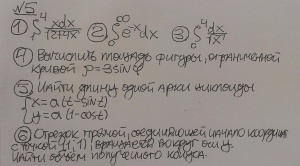 √5
① ∫₀⁴ xdx/√2+4x ② ∫₀^∞ e⁻ˣdx ③ ∫₀⁴ dx/√x
④ Вычислить площадь фигуры, ограниченной
кривой ρ=3sin
⑤ Найти длину одной арки циклоиды
{x=a(t-sint)
y=a(1-cost)
⑥ Отрезок прямой, соединяющей начало координат
с точкой (1, 1), вращается вокруг оси y.
Найти объём получаемого конуса.